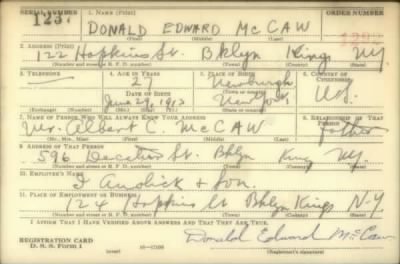 SERIAL NUMBER
1. NAME (Print)
ORDER NUMBER
123
DONALD EDWARD McCAW
2. ADDRESS (Print)
122 Hopkins St. Bklyn King NY
(Number and street or R. F. D. number) (Town) (County) (State)
3. TELEPHONE
4. AGE IN YEARS
5. PLACE OF BIRTH
6. COUNTRY OF CITIZENSHIP
27
Newburgh
DATE OF BIRTH
June 29, 1913
New York
U.S.
(Exchange) (Number) (Mo.) (Day) (Yr.) (State or country)
7. NAME OF PERSON WHO WILL ALWAYS KNOW YOUR ADDRESS
8. RELATIONSHIP OF THAT PERSON
Mr. Albert C. McCAW
Father
(Mr., Mrs., Miss) (First) (Middle) (Last)
9. ADDRESS OF THAT PERSON
596 Decatur St. Bklyn King NY.
(Number and street or R. F. D. number) (Town) (County) (State)
10. EMPLOYER'S NAME
& Son.
11. PLACE OF EMPLOYMENT OR BUSINESS
124 Hopkins St Bklyn Kings N.Y.
(Number and street or R. F. D. number) (Town) (County) (State)
I AFFIRM THAT I HAVE VERIFIED ABOVE ANSWERS AND THAT THEY ARE TRUE.
REGISTRATION CARD
D. S. S. Form 1
(over)
Donald Edward McCaw
(Registrant's signature)